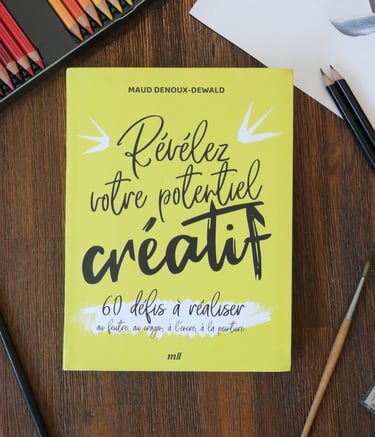 MAUD DENOUX-DEWALD
Révélez
votre potentiel
créatif
60 défis à réaliser
au feutre, au crayon, à l'encre, à la peinture
mll